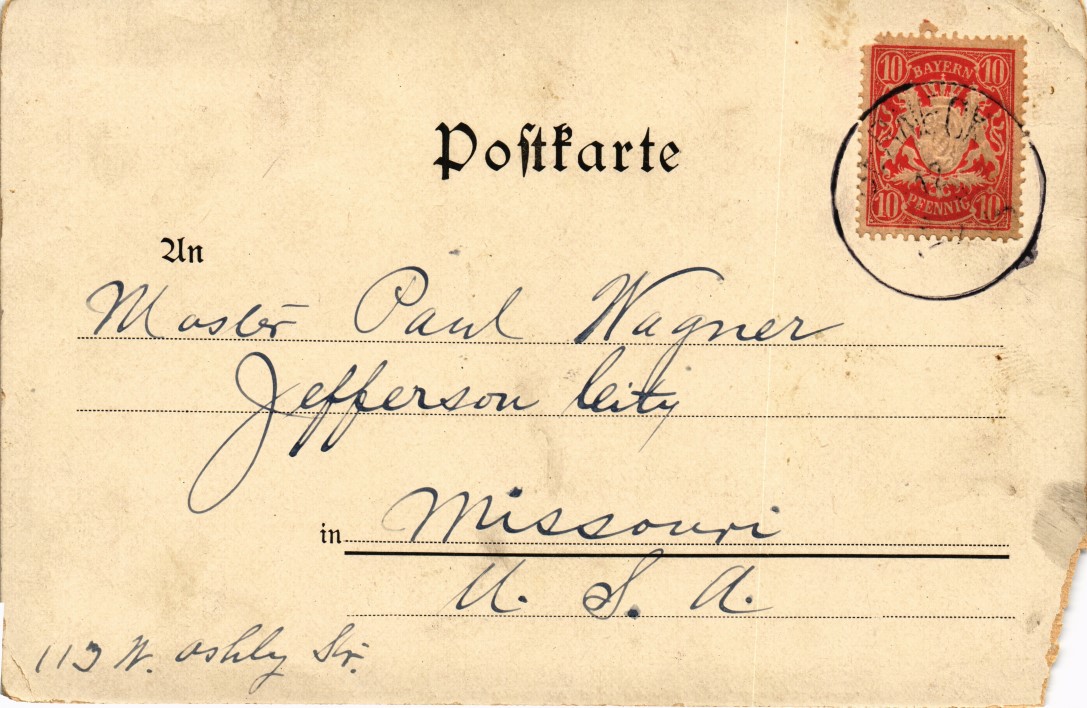 10 BAYERN 10
10 PFENNIG 10
Postkarte
An
Master Paul Wagner
Jefferson City
in Missouri
U. S. A.
113 W. Ashly Str.